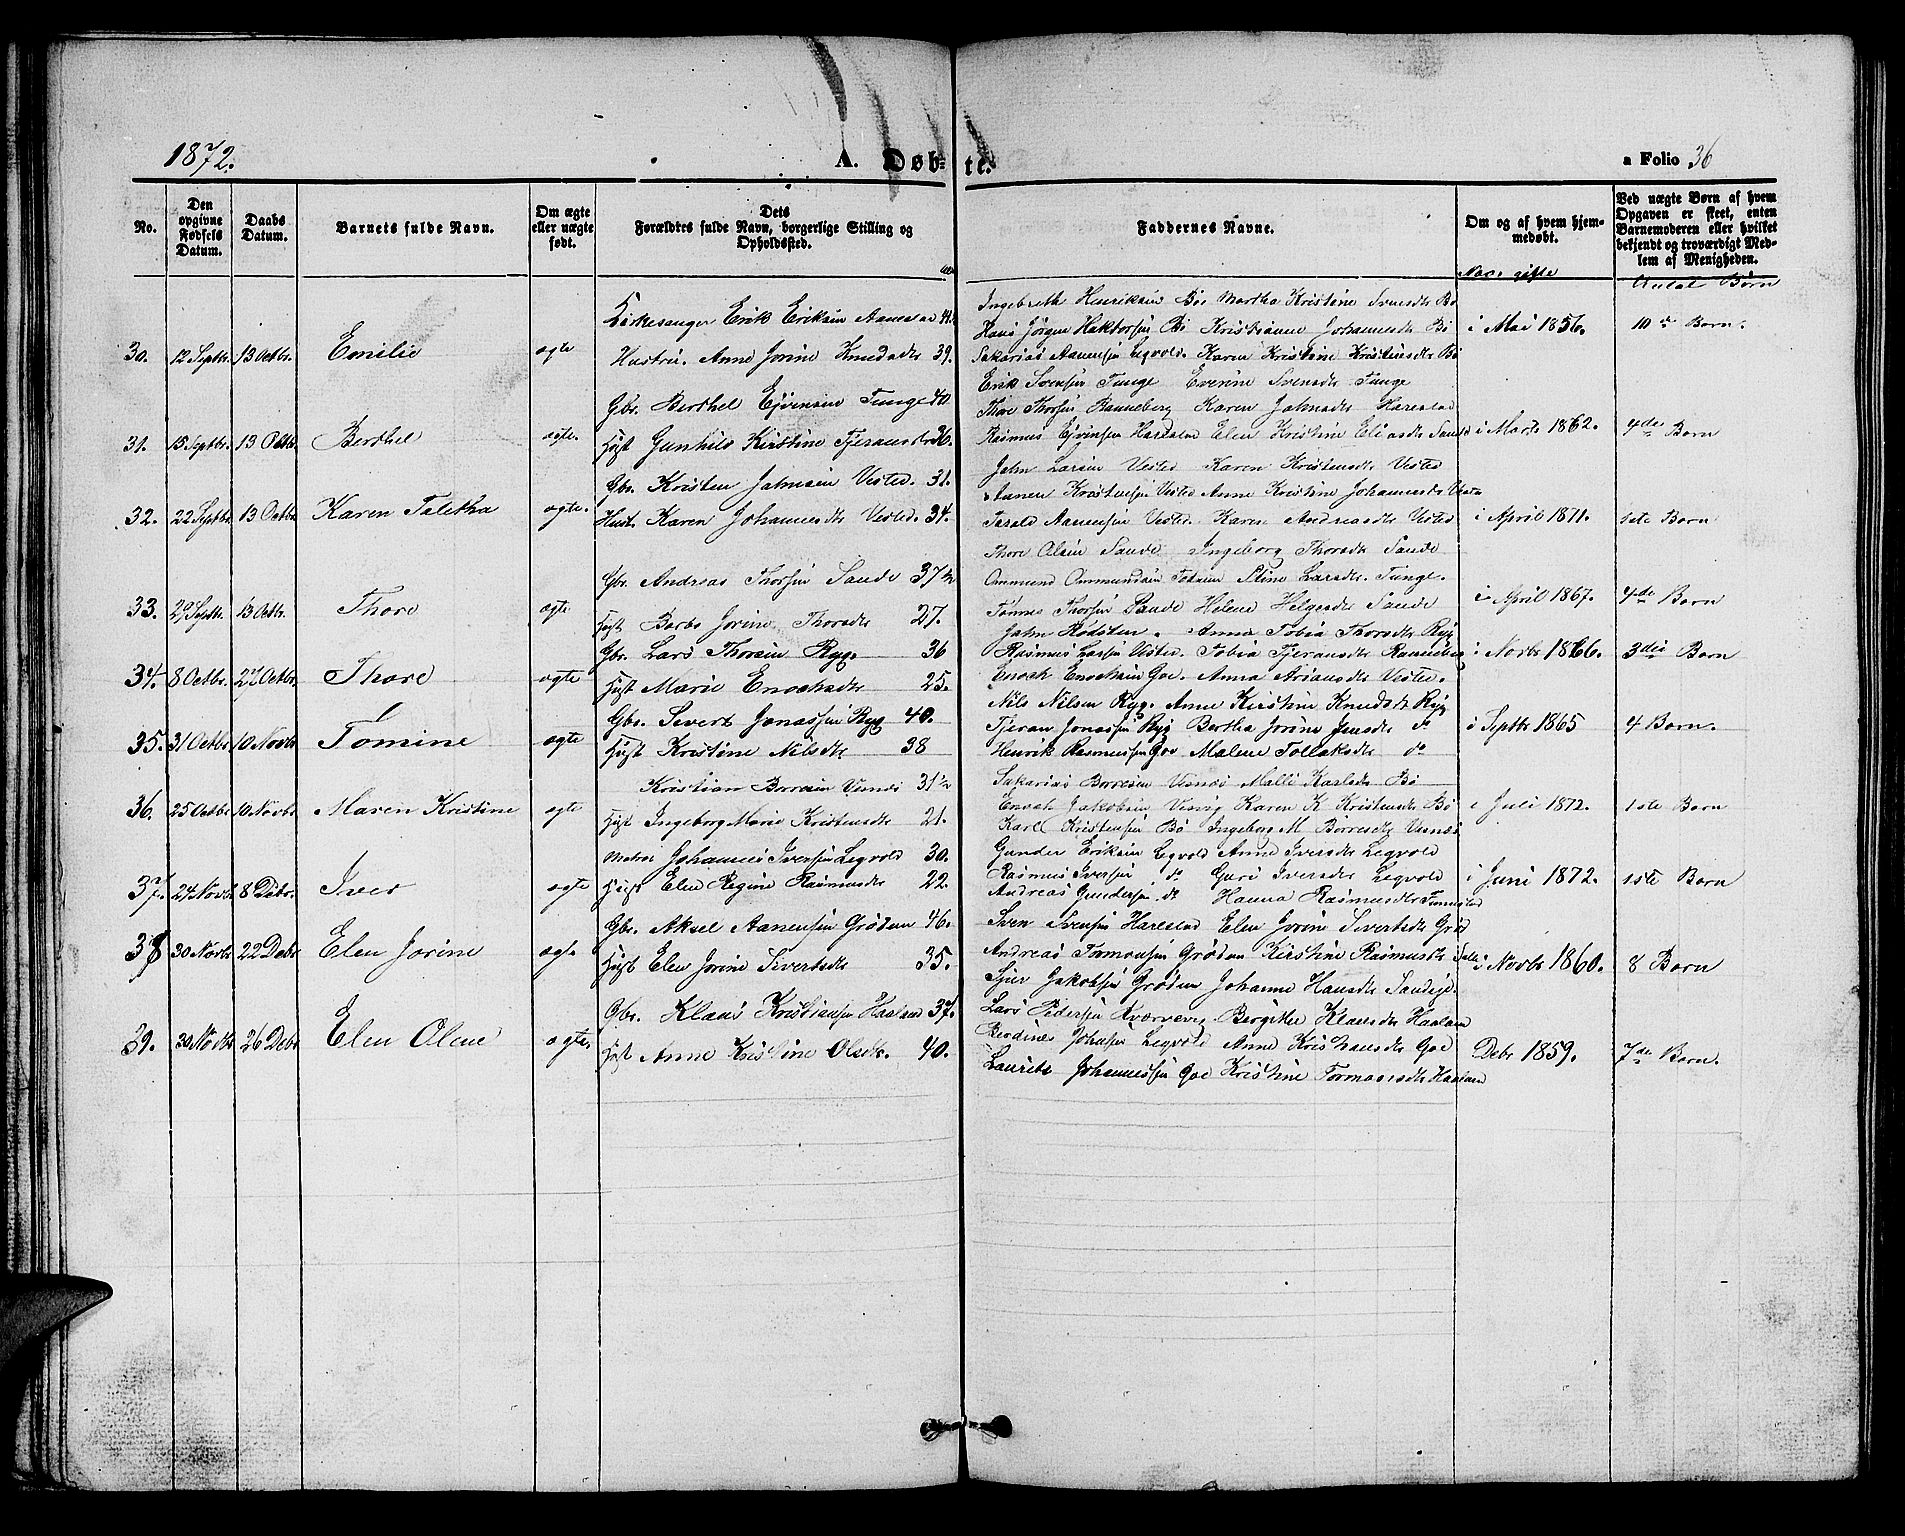 1872.
A. Døb-
te.
a Folio 36
No.
Den
opgivne
Fødsels
Datum.
Daabs
Datum.
Barnets fulde Navn.
Om ægte
eller uægte
født.
Dets
Forældres fulde Navn, borgerlige Stilling og
Opholdssted.
Faddernes Navne.
Om og af hvem hjem-
medøbt.
Ved uægte Børn af hvem
Opgaven er skeet, enten
Barnemoderen eller hvilket
bekjendt og troværdigt Med-
lem af Menigheden.
gifte
Antal Børn
30. 12 Septbr. 13 Octbr. Emilie ægte
Kirkesanger Erik Eriksen 44.
Hustru. Anne Jorine Knudsdtr 39.
Ingebreth Henriksen Bø Martha Kristine Svensdtr Bø
Hans Jørgen Haktorsen Bø Kristianne Johannesdtr Bø
Sakarias Aanensen Leqvold. Karen Kristine Kristensdtr Bø
i Mai 1856.
10de Barn.
31. 15 Septbr. 13 Octbr. Berthel ægte.
Gbr. Berthel Ejvensen Tunge 40
Hust Gunhild Kirstine 36.
Erik Svensen Tunge Everine Svensdtr Tunge
Thore Thorsen Ranneberg Karen Johnsdtr Harestad
Rasmus Ejvensen Harestad Elen Kristine Eliasdtr Sande
i Marts 1862.
4de Barn
32. 22 Septbr 13 Octbr Karen Taletha ægte.
Gbr. Kristen Johnsen Vested. 31.
Hust. Karen Johannesdtr Vested. 34.
John Larsen Vested Karen Kristensdtr Vested
Aanen Kristensen Vested Anne Kristine Johannesdtr Vested
Tarald Aanensen Vested. Karen Andreasdtr Vested
i April 1871.
1ste Barn
33. 29 Septbr. 13 Octbr. Thore ægte
Gbr. Andreas Thorsen Sande 37½
Hust Berbe Jorine Thorsdtr 27.
Thore Olsen Sande Ingeborg Thorsdtr Sande
Ommund Ommundsen Stine Larsdtr. Tunge.
Tønnes Thorsen Sande Helene Helgesdtr Sande
John Rødsten. Anna Tobia Thorsdtr Ryg
i April 1867.
4de Barn
34. 8 Octbr. 27 Octbr. Thore ægte
Gbr. Lars Thorsen Ryg. 36
Hust Marie Enochsdtr 25.
Rasmus Larsen Vested. Tobia Tjeransdtr Ranneberg
Enoch Enochsen Goe. Anna Ariansdtr Vested.
i Novbr 1866.
3die Barn
35. 31 Octbr. 10 Novbr Tomine ægte
Gbr. Sivert Jonassen Ryg 40.
Hust Kristine Nilsdtr 38
Nils Nilsen Ryg. Anne Kirstine Knudsdtr Ryg
Tjeran Jonassen Ryg Bertha Jorine Jensdtr do
Henrik Rasmussen Goe Malene Tollaksdtr do
i Septbr 1865
4 Barn.
36. 25 Octbr 10 Novbr. Maren Kristine ægte
Kristian Børresen Visnes 31½
Hust Ingeborg Marie Kristensdtr 21.
Sakarias Børresen Visnes Malli Karlsdtr Bø
Enoch Jakobsen Visvig Karen K Kristensdtr Bø
Karl Kristensen Bø Ingeborg M Børresdtr Visnes
i Juli 1872.
1ste Barn
37. 24 Novbr 8 Debr. Iver ægte
Matros Johannes Iversen Leqvold 30.
Hust Elen Regine Rasmusdtr 22.
Gunder Eriksen Leqvold Anne Iversdtr Leqvold
Rasmus Iversen do Guri Iversdtr Leqvold
Andreas Gundersen do Hanna Rasmusdtr
i Juni 1872.
1ste Barn
38 30 Novbr 22 Debr Elen Jorine ægte
Gbr. Aksel Aanensen Grødem 46.
Hust Elen Jorine Sivertsdtr 35.
Sven Svensen Harestad Elen Jorine Sivertsdtr Grød
Andreas Tormodsen Grødem Kirstine Rasmusdtr
Sjur Jakobsen Grødem Johanne Hansdtr
i Novbr 1860.
8 Barn
39. 30 Novbr 26 Debr Elen Olene ægte.
Gbr. Klaus Kristiansen Haaland 37.
Hust Anne Kristine Olsdtr. 40.
Lars Pedersen Kværnevig Bergitte Klausdtr Haaland
Johnsen Leqvold Anne Kristiansdtr Goe
Laurits Johannessen Goe Kristine Tormodsdtr Haaland
Debr 1859.
7de Barn.